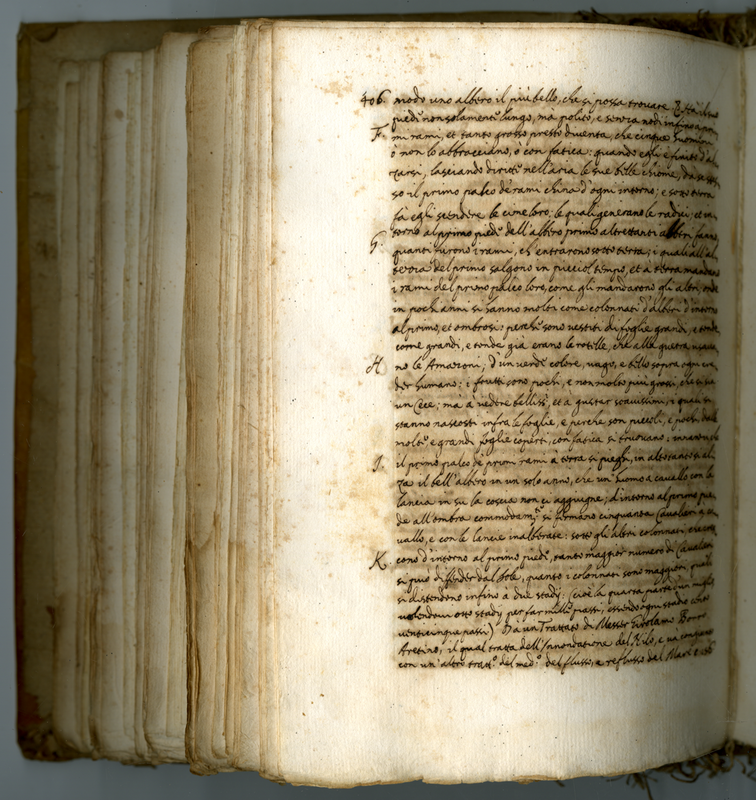 406. modo uno albero il più bello, che si possa trovare.
piedi non solamente lungo, mà polito, e senza nodi infino a pri
F. mi rami, et tanto grosso presto diventa, che cinque huomini
ò non lo abbracciano, ò con fatica: quando egli è finito d'al
zarsi, lasciando diritte nell'aria le sue belle chiome, da se stes
so il primo palco de rami china d'ogni intorno; e sotto terra
fà egli scendere le cime loro; le quali generano le radici, et in
G. torno al primo piede dell'albero primo altrettanti albri fanno
quanti furono i rami, ch'entrarono sotto terra; i quali all'al
tezza del primo salgono in picciol tempo, et a terra mandano
i rami del primo palco loro, come gli mandarono gli altri, onde
in pochi anni si hanno molti come colonnati d'albri d'intorno
al primo, et ombrosi: perche sono vestiti di foglie grandi, e tonde
come grandi, e tonde già erano le rotelle, che alla guerra usava
H no le Amazoni; d'un verde colore, vago, e bello sopra ogni cre
der humano: i frutti sono pochi, e non molto più grossi, che si sia
un Cece; mà à vedere bellissi, et a gustar soavissimi; i quai si
stanno nascosti infra le foglie, e perche son piccoli, e pochi, dalle
molte e grandi foglie coperti, con fatica si truovano: innanzi che
J. il primo palco de primi rami à terra si pieghi, in alto tanto si al
za il bell'albero in un solo anno, che un huomo a cavallo con la
lancia in su la coscia non ci aggiugne; d'intorno al primo pie
de all'ombra commodamte. si fermano cinquanta Cavalieri a ca
vallo, e con le lancie inalberate: sotto gli altri colonnati, che
K. cono d'intorno al primo piede, tanto maggior numero di Cavalieri
si può difender dal Sole, quanto i colonnati sono maggiori, quali
si distendono infino à due stadij: (cioè la quarta parte d'un miglio
volendovi otto stadij per far mille passi, essendo ogni stadio cento
venticinque passi) Da un Trattato di Messer Girolamo Borro
Aretino, il qual tratta dell'Innondatione del Nilo, e va congiunto
con un'altro tratto. del medo. del flusso, e reflusso del Mare